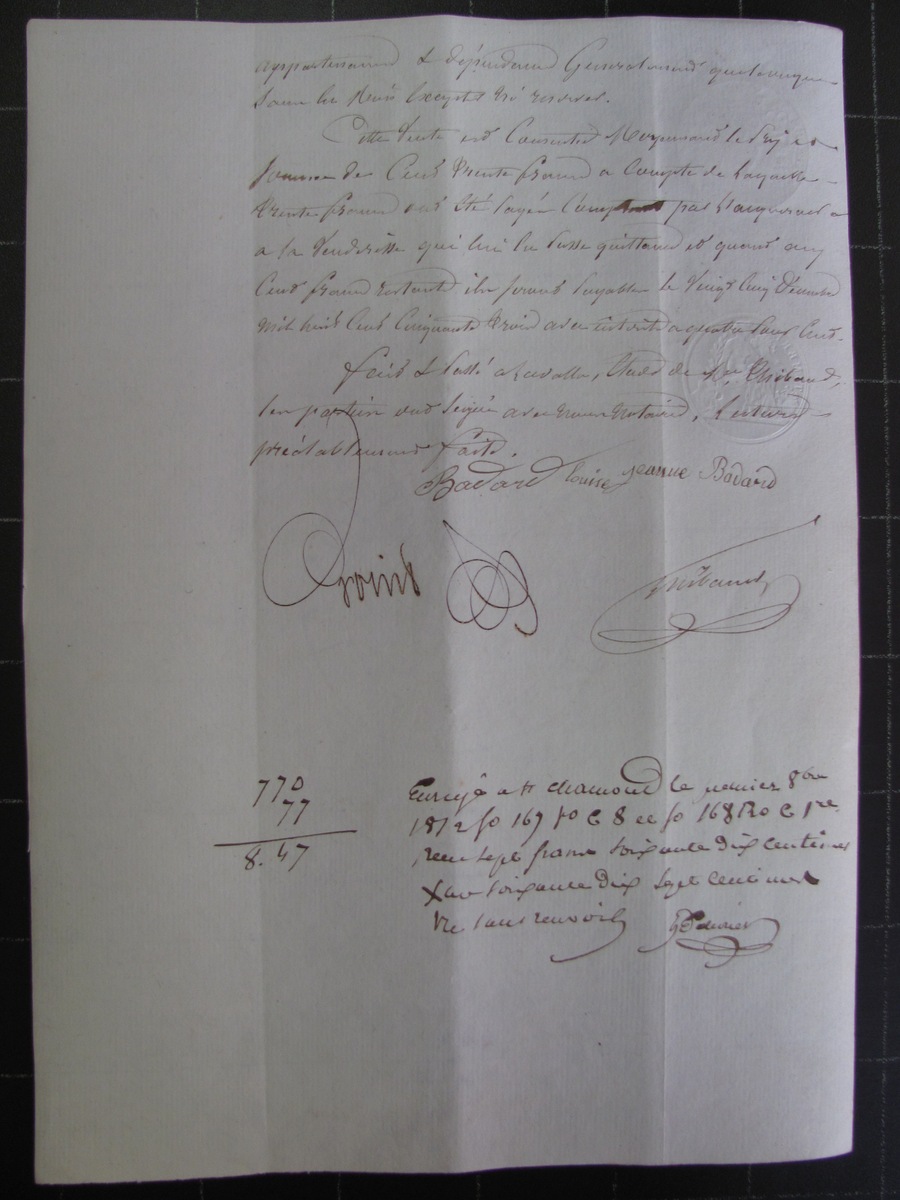 appartenances & dépendances Generalement quelconque
sans en Rien Excepter ni reserver.
Cette Vente est Consentie Moyennant le Prix et
somme de Cent Trente francs a Compte de Laquelle
Trente francs ont été payés Comptant par l'acquereur
a la Venderesse qui lui en Passe quittance et quant aux
Cent francs restants ils seront payables le Vingt Cinq Décembre
Mil huit Cent Cinquante Trois avec intérêts a quatre pour Cent.
fait & Passé a Lavalla, Etude de Me Thibaud,
les parties ont Signé avec nous notaires, Lecture
préalablement faite.
Badard Louise jeanne Badard
Thibaud
770
77
8.47
Enregé a St chamond le premier 8bre
1852 fo 167 Vo C 8 et fo 168 Ro C 1re
reçu sept francs soixante dix centimes
Xme soixante dix sept centimes
sans renvoi